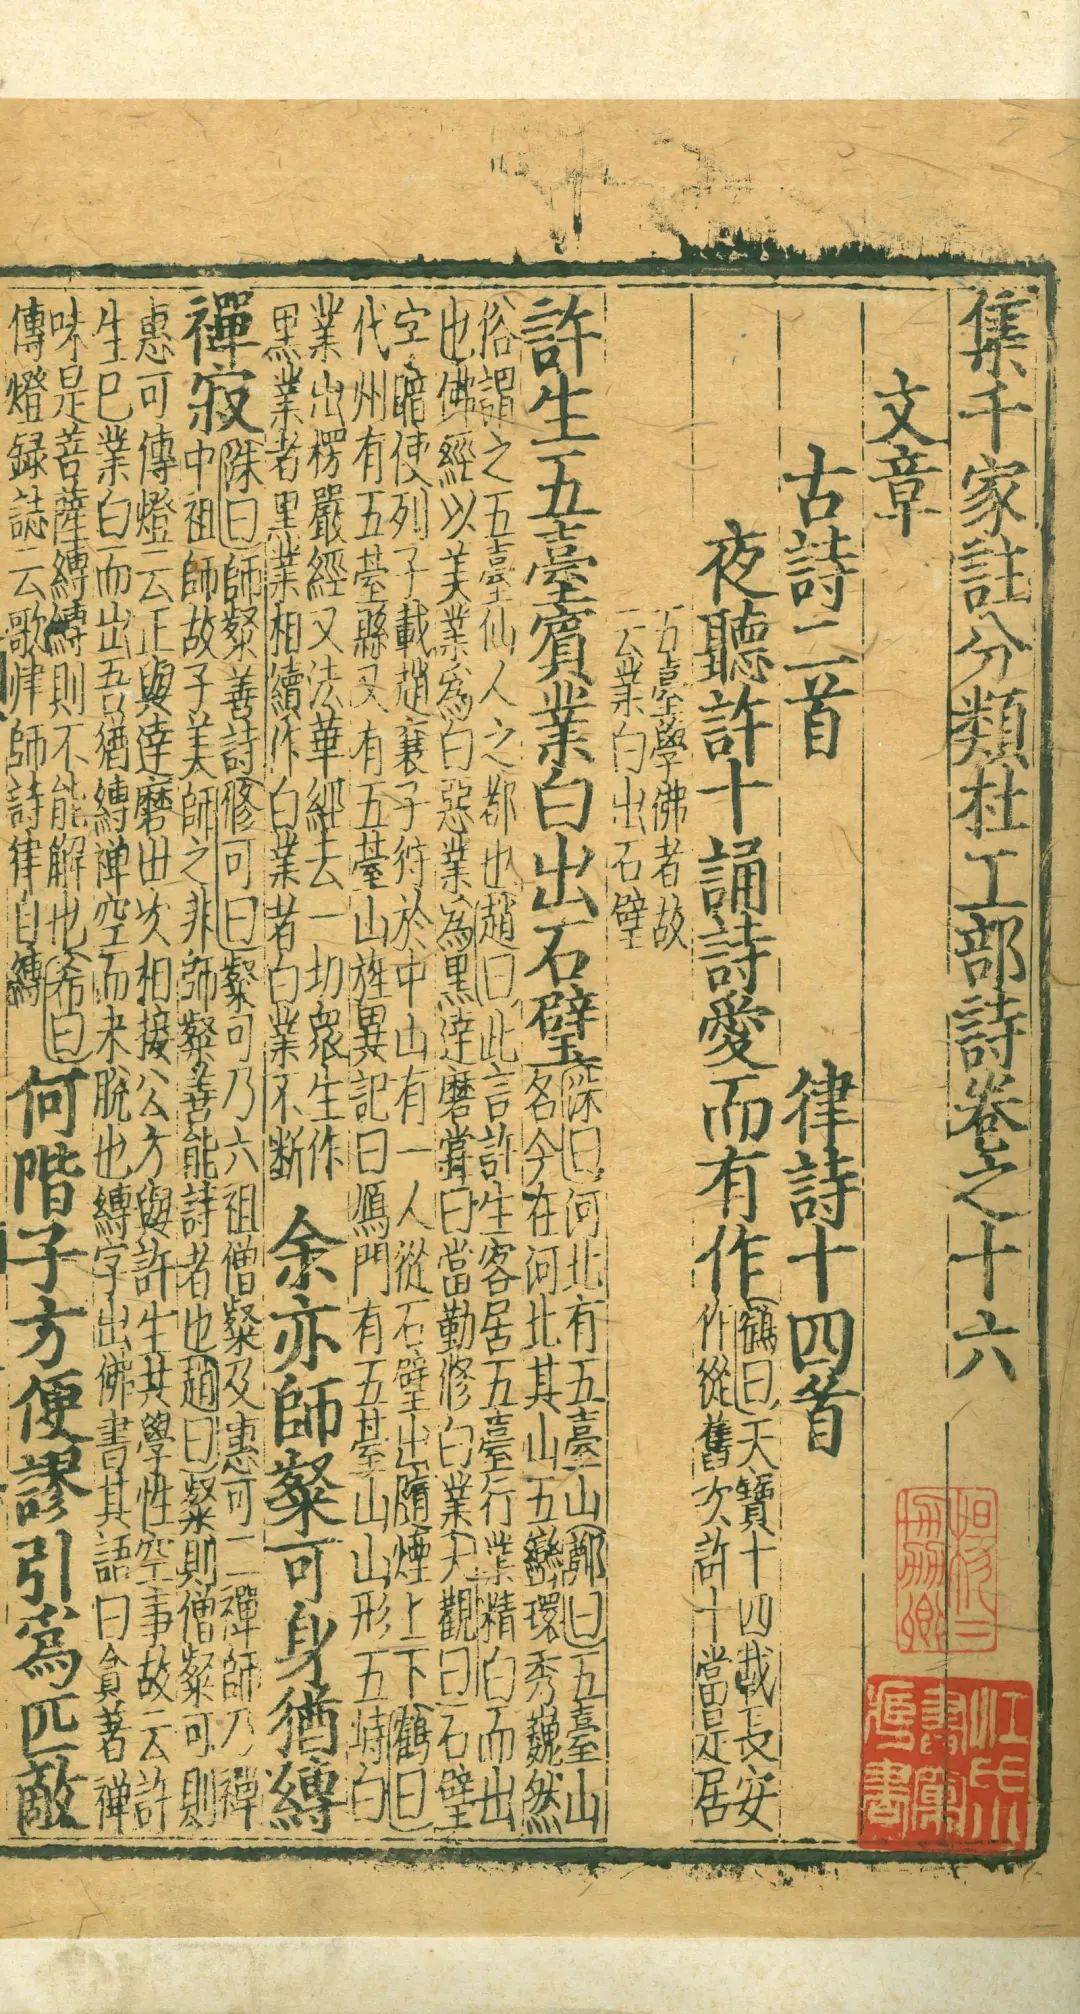 集千家註分類杜工部詩卷之十六
文章
古詩二首 律詩十四首
夜聽許十誦詩愛而有作 鶴曰天寶十四載長安
作從舊次許十當是居
五臺學佛者故
云業白出石壁
許生五臺賓業白出石壁 深曰河北有五臺山鄭曰五臺山
名今在河北其山五巒環秀巍然
俗謂之五臺仙人之都也趙曰此言許生客居五臺行業精白而出
也佛經以美業為白惡業為黑達磨嘗曰當勤修白業天觀曰石壁
空瞻使列子載趙襄子狩於中山有一人從石壁出隨煙上下鶴曰
代州有五臺縣又有五臺山旌異記曰鴈門有五臺山山形五峙白
業出楞嚴經又法華經去一切衆生作
黑業者黑業相續作白業者白業不斷 余亦師粲可身猶縛
禪寂 洙曰師粲善詩修可曰粲可乃六祖僧粲及惠可二禪師乃禪
中祖師故子美師之非師粲善能詩者也趙曰粲則僧粲可則
惠可傳燈云正與達磨世次相接公方與許生共學性空事故云許
生巳業白而出吾猶縛禪空而未脫也縛字出佛書其語曰貪著禪
味是菩薩縛縛則不能解也希曰
傳燈録誌云歌律師詩律自縛 何階子方便謬引爲匹敵